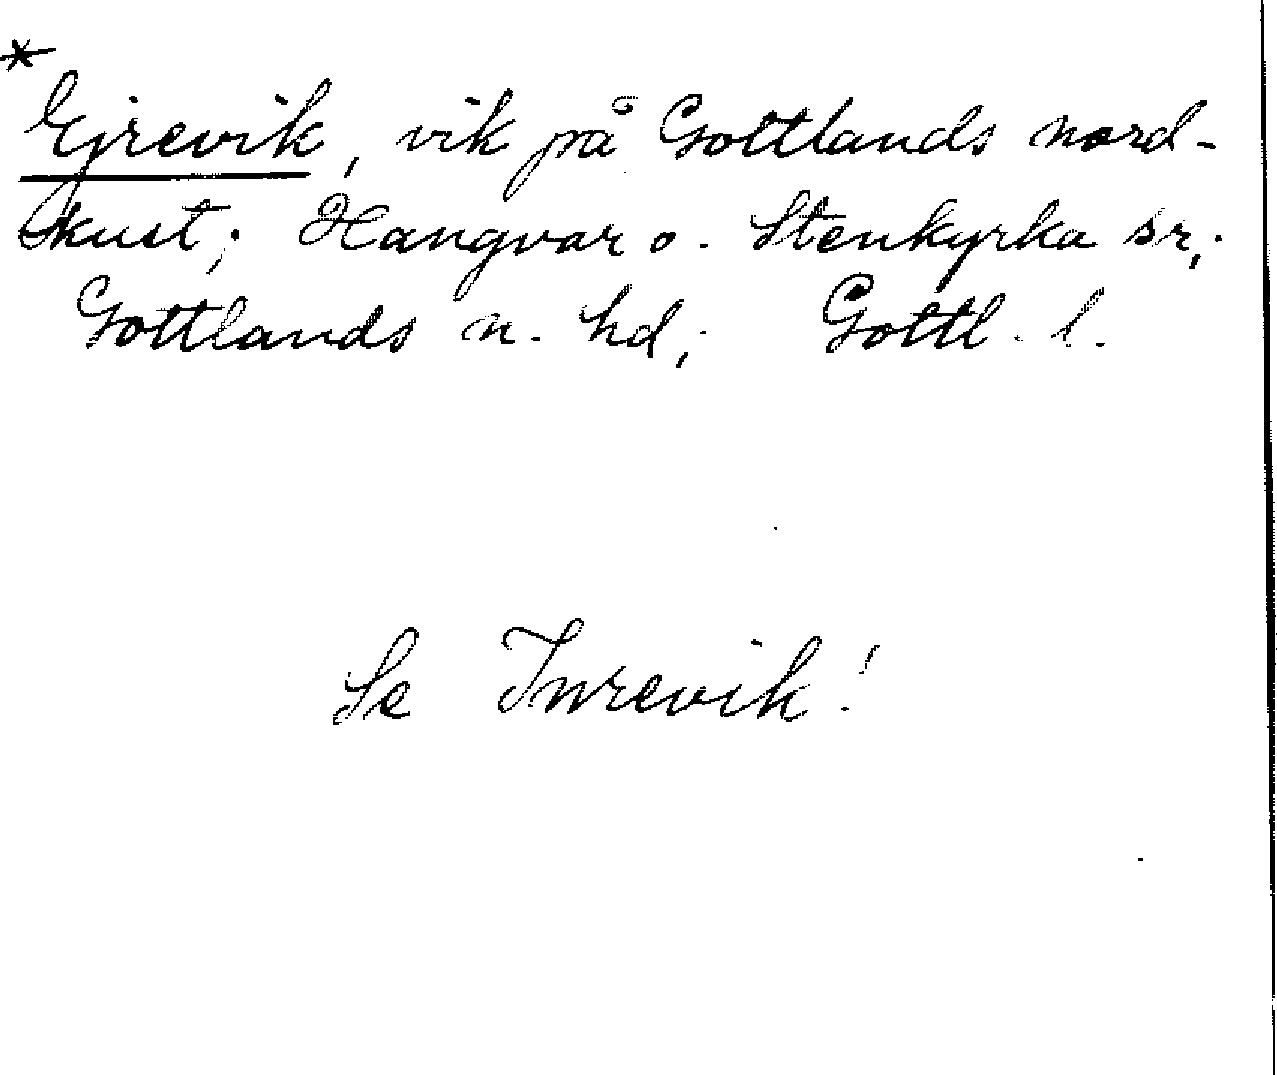 *
Ejrevik, vik på Gottlands nord-
kust; Hangvar o. Stenkyrka sr,
Gottlands n. hd, Gottl. l.
Se Inrevik!